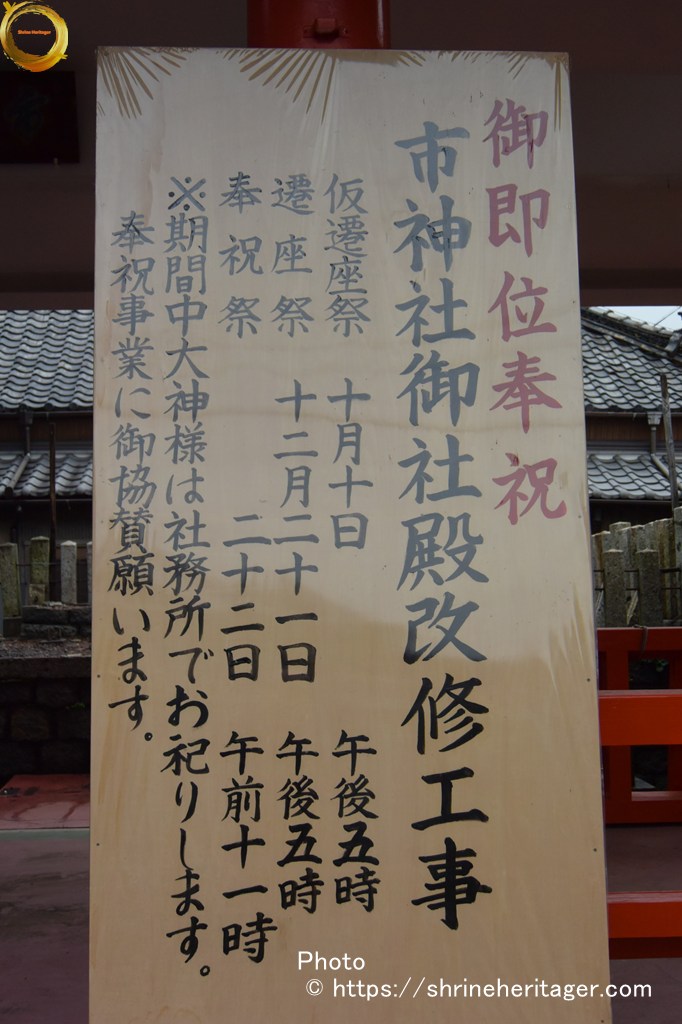 Shrine Heritager
御即位奉祝
市神社御社殿改修工事
仮遷座祭 十月十日 午後五時
遷座祭 十二月二十一日 午後五時
奉祝祭 二十二日 午前十一時
※期間中大神様は社務所でお祀りします。
奉祝事業に御協賛願います。
Photo
© https://shrineheritager.com